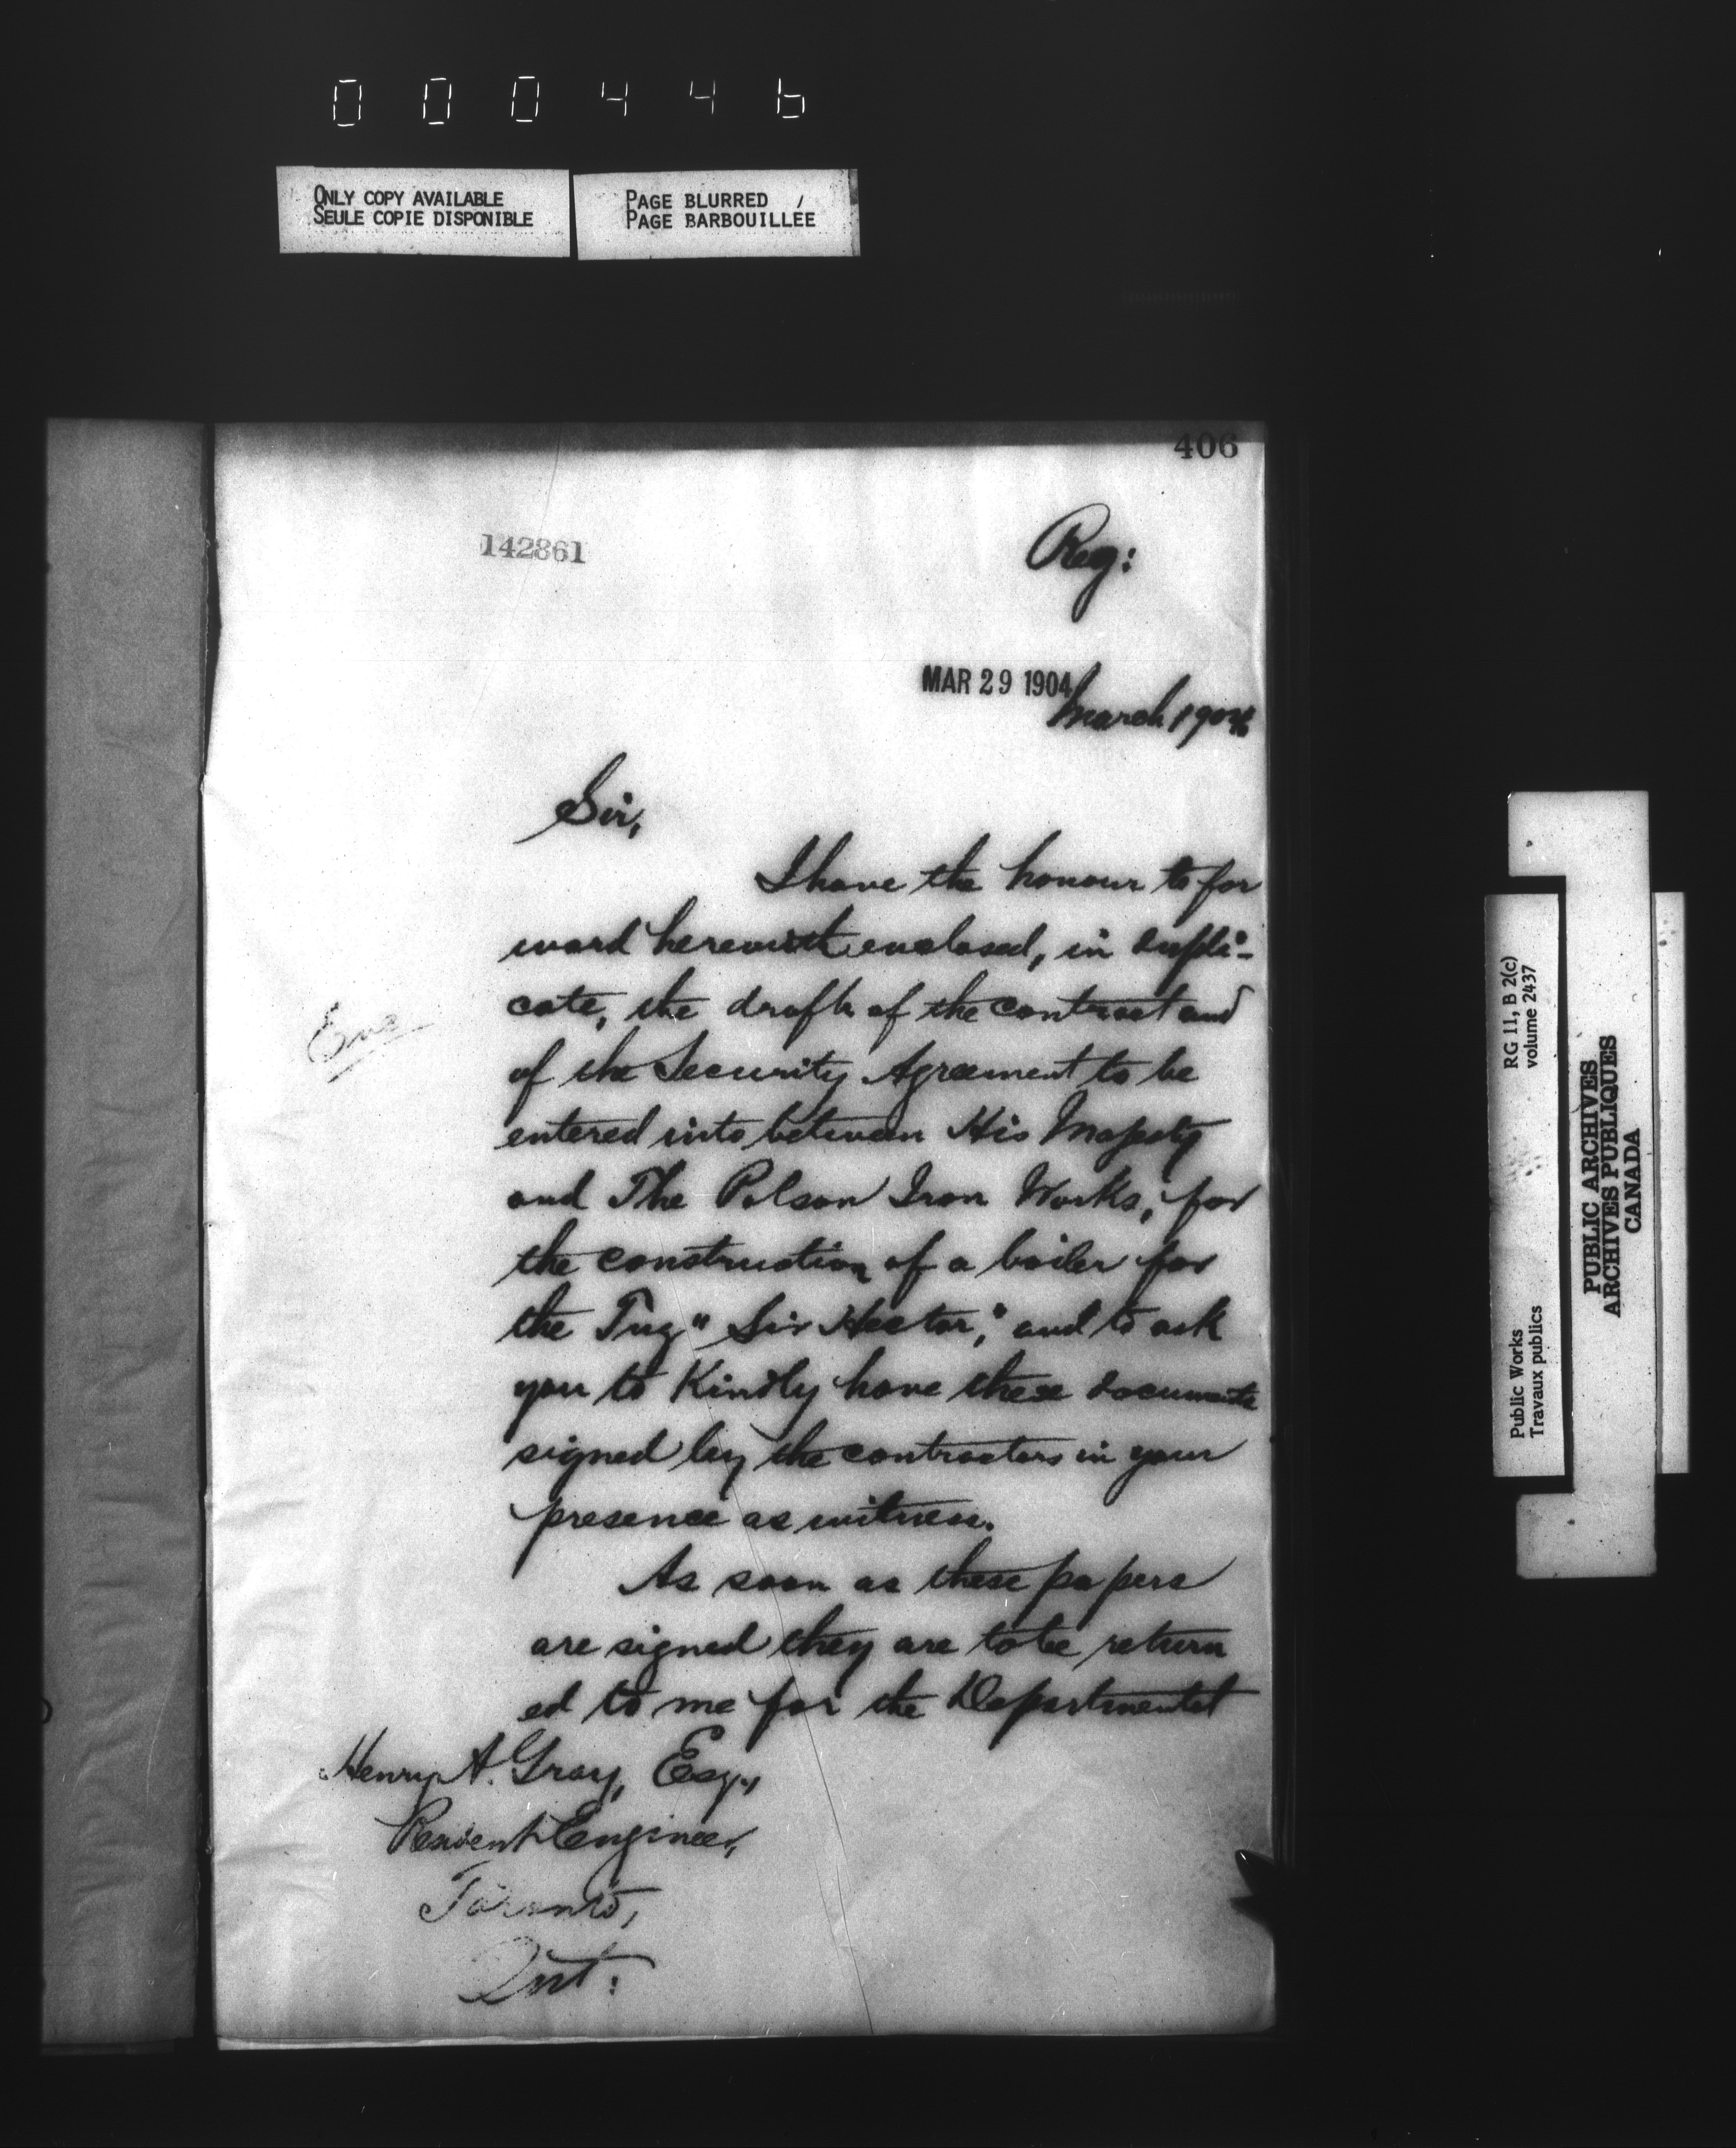 000446
ONLY COPY AVAILABLE
SEULE COPIE DISPONIBLE
PAGE BLURRED /
PAGE BARBOUILLÉE
406
142861
Reg:
MAR 29 1904
March 1904
Sir,
I have the honour to for
ward herewith enclosed, in dupli-
cate, the draft of the contract and
of the Security Agreement to be
entered into between His Majesty
and The Polson Iron Works, for
the construction of a boiler for
the Tug "Sir Hector," and to ask
you to Kindly have these documents
signed by the contractors in your
presence as witness.
As soon as these papers
are signed they are to be return
ed to me for the Departmental
Henry A. Gray, Esq.,
Resident Engineer,
Toronto,
Ont:
Public Works
Travaux publics
RG 11, B 2(c)
volume 2437
PUBLIC ARCHIVES
ARCHIVES PUBLIQUES
CANADA